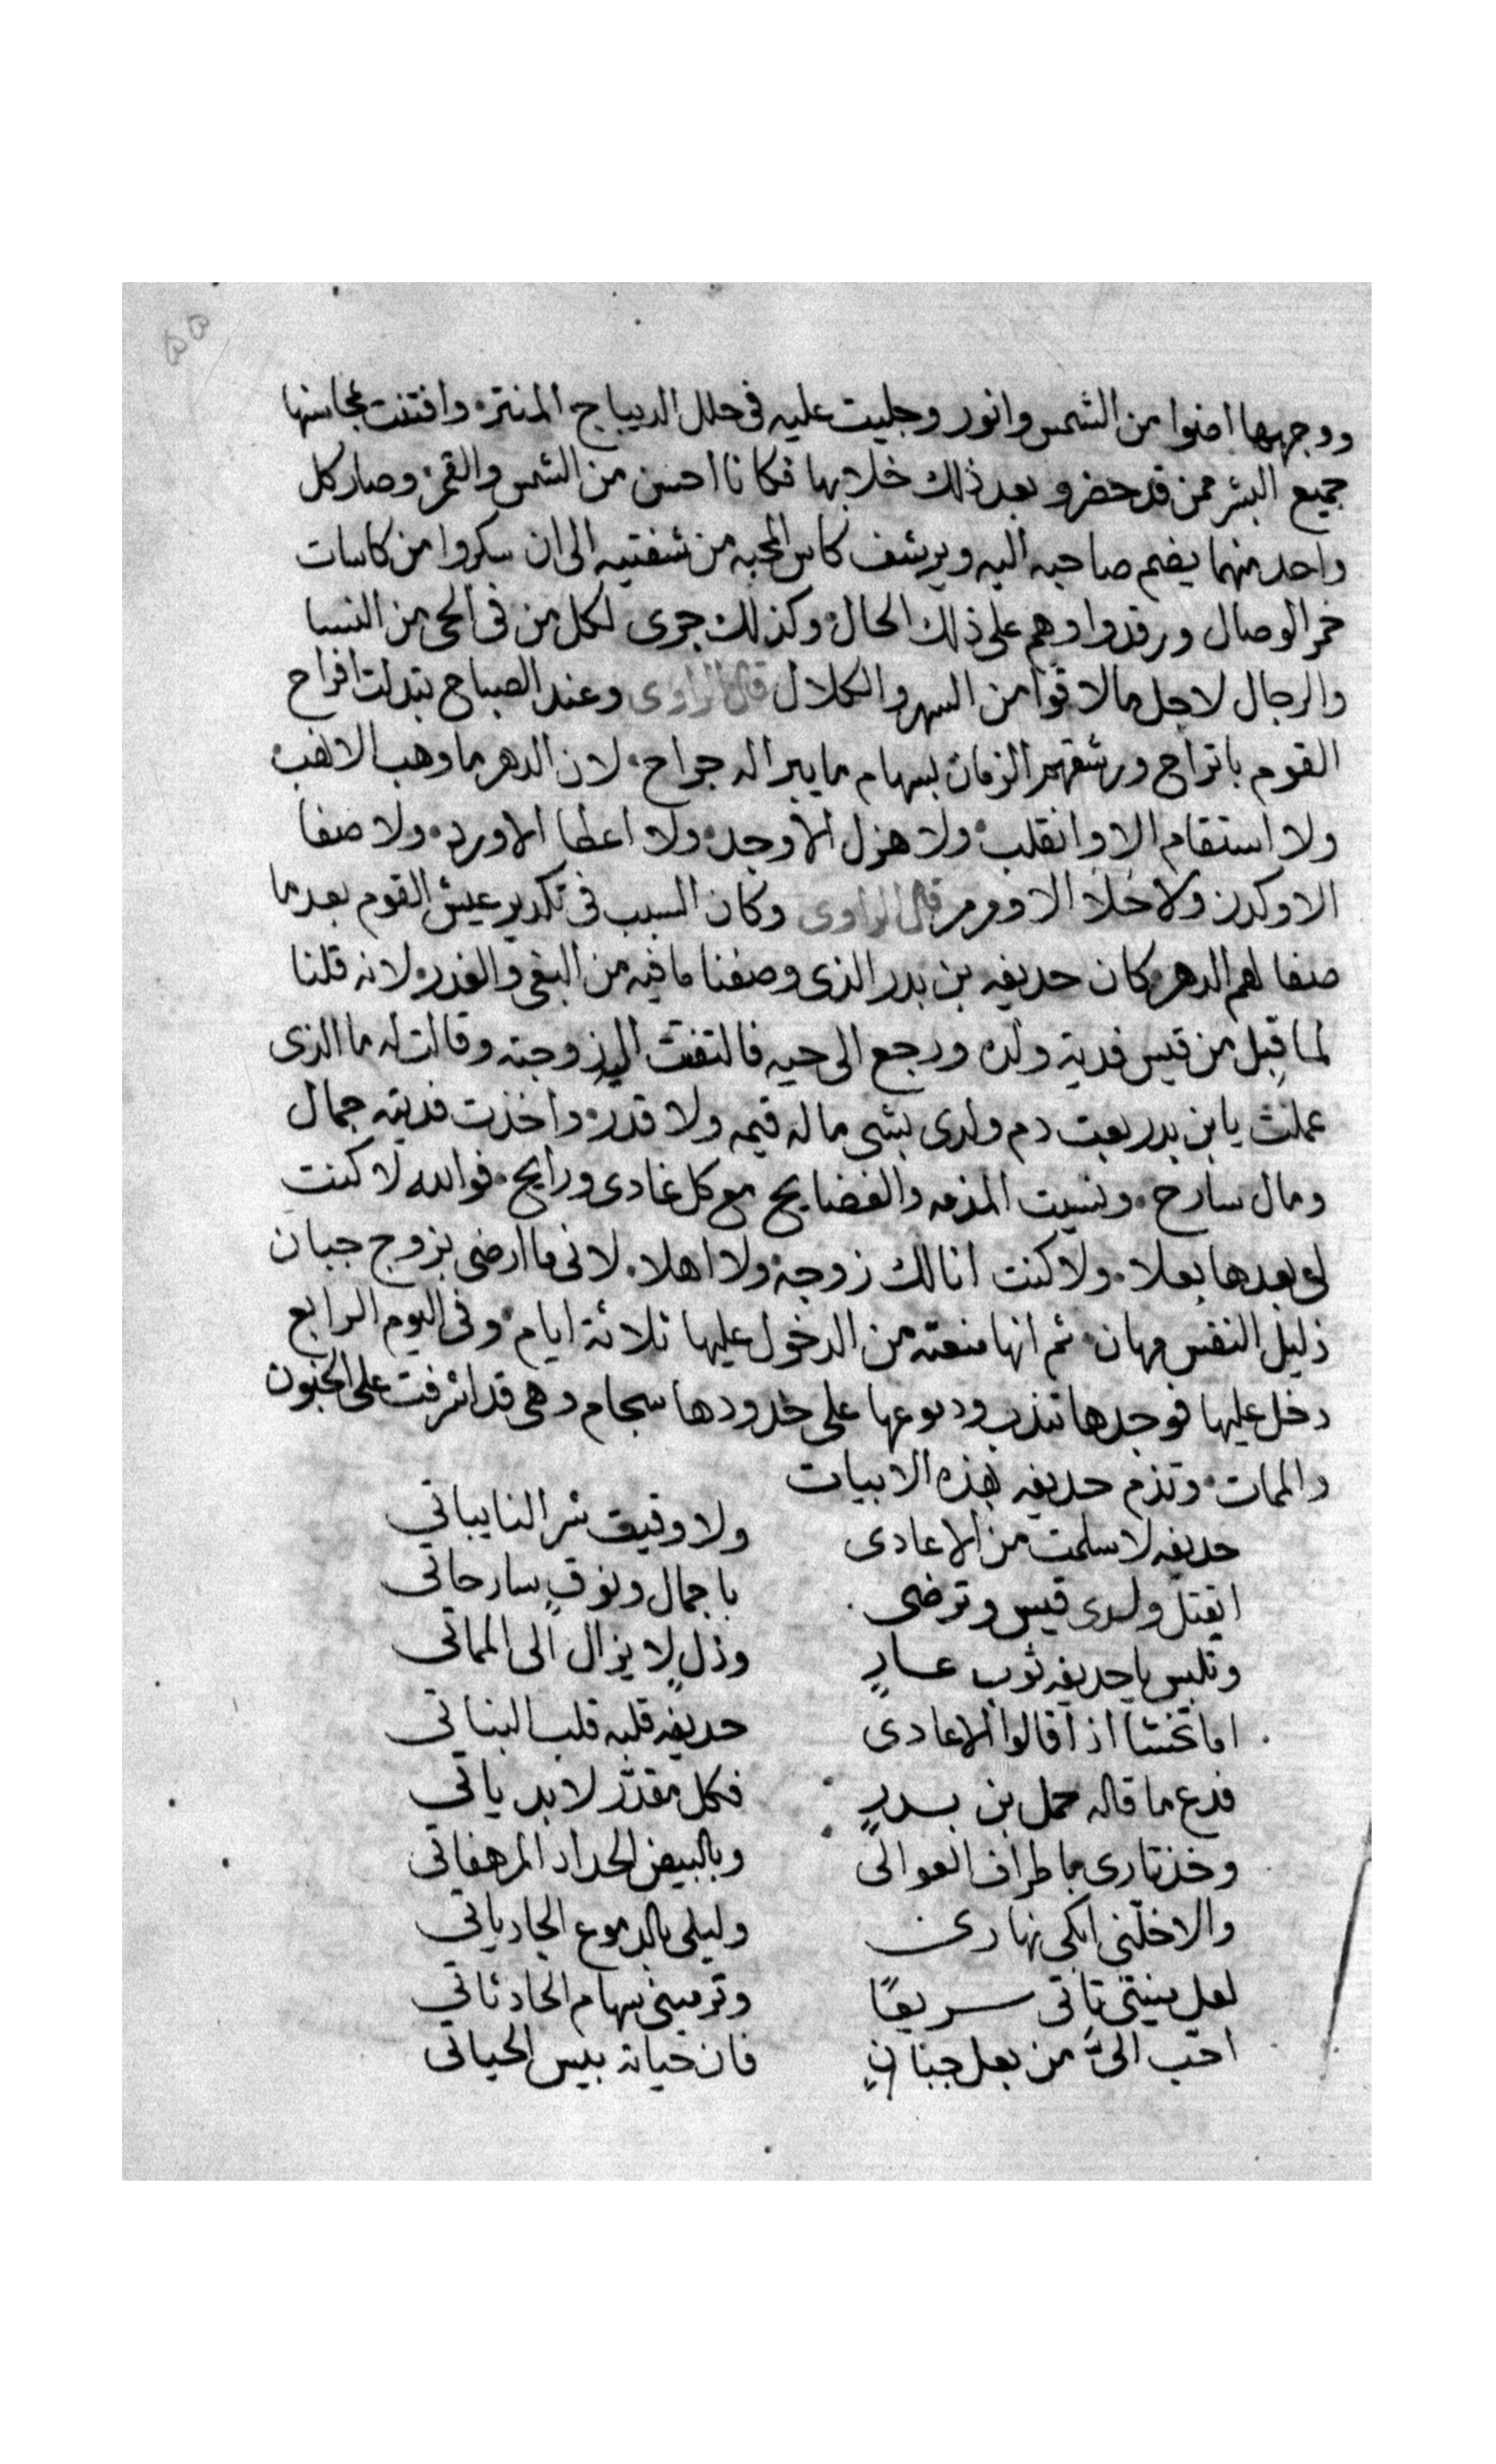 ووجهها اضوا من الشمس وانور وجليت عليه فى حلل الديباج المنتر وافتنت بمحاسنها
جميع البشر ممن قد حضر وبعد ذلك خلا بها فكانا احسن من الشمس والقمر وصار كل
واحد منهما يضم صاحبه اليه ويرشف كاس المحبه من شفتيه الى ان سكروا من كاسات
خمر الوصال ورقدوا وهم على ذلك الحال وكذلك جرى لكل من فى الحى من النسا
والرجال لاجل ما لاقوا من السهر والكلال قال الراوى وعند الصباح تبدلت افراح
القوم باتراح ورشقهم الزمان بسهام ما يبرا له جراح لان الدهر ما وهب الا نهب
ولا استقام الا وانقلب ولا هزل الا وجد ولا اعطا الا ورد ولا صفا
الا وكدر ولا حلا الا ومرمر قال الراوى وكان السبب فى تكدير عيش القوم بعد ما
صفا لهم الدهر كان حديفه بن بدر الذى وصفنا ما فيه من البغى والغدر لانه قلنا
لما قبل من قيس فدية ولده ورجع الى حيه فالتفتت اليه زوجته وقالت له ما الذى
عملت يا بن بدر بعت دم ولدى بشى ما له قيمه ولا قدر واخذت فديته جمال
ومال سارح ونسيت المذمه والفضايح مع كل غادى ورايح فوالله لا كنت
لى بعدها بعلا ولا كنت انا لك زوجة ولا اهلا لانى ما ارضى بزوج جبان
ذليل النفس مهان ثم انها منعته من الدخول عليها ثلاثة ايام وفى اليوم الرابع
دخل عليها فوجدها تندب ودموعها على خدودها سجام وهى قد اشرفت على الجنون
والممات وتذم حديفه بهذه الابيات
حديفه لا سلمت من الاعادى ولا وقيت شر النايباتى
ايقتل ولدى قيس وترضى باجمال ونوق سارحاتى
وتلبس يا حديفه ثوب عار وذل لا يزال الى المماتى
اما تخشا اذا قالوا الاعادى حديفه قلبه قلب البناتى
فدع ما قاله حمل بن بدر فكل مقدر لا بد ياتى
وخذ تارى باطراف العوالى وبالبيض الحداد المرهفاتى
والا خلنى ابكى نهارى وليلى بالدموع الجارياتى
لعل منيتى تاتى سريعا وترمينى سهام الحادثاتى
احب الى من بعل جبان فان حياته بيس الحياتى